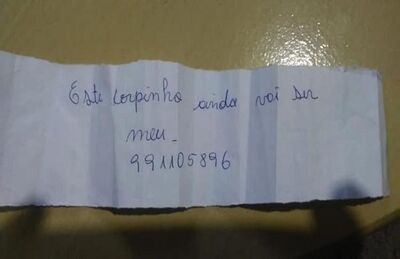 Este corpinho ainda vai ser
meu_
991105896